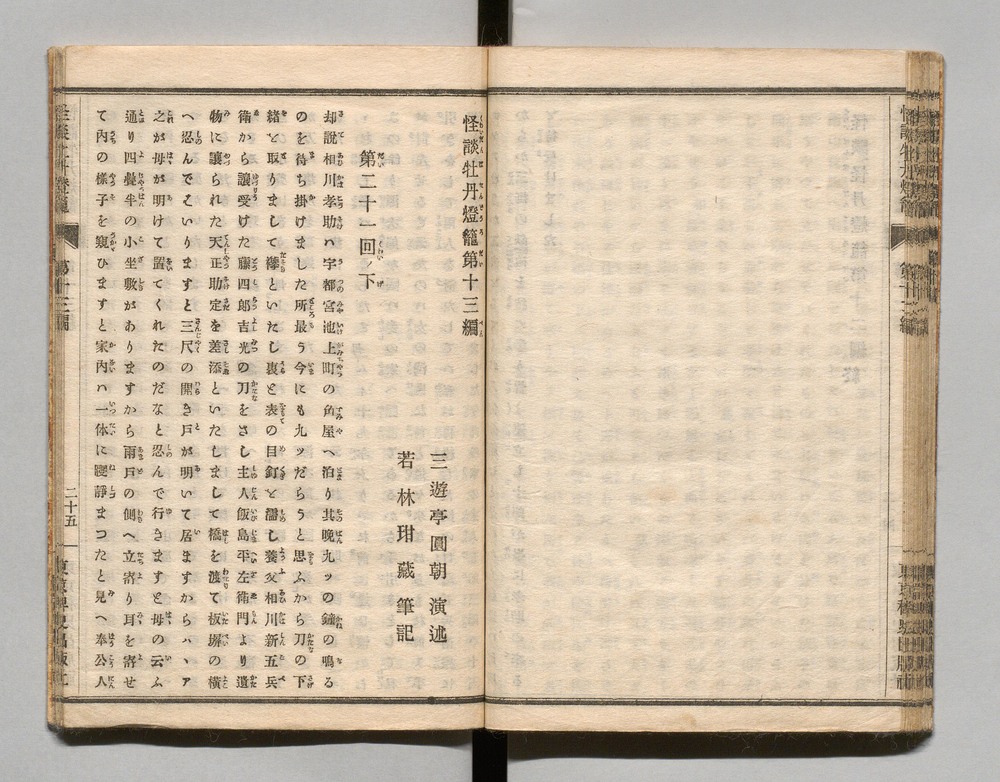 怪談牡丹燈籠第十三編
三遊亭圓朝 演述
若林玵藏 筆記
第二十一回ノ下
却説相川孝助ハ宇都宮池上町の角屋へ泊り其晩九ッの鐘の鳴る
のを待ち掛けました所最う今にも九ッだらうと思ふから刀の下
緒を取りまして襷といたし裏と表の目釘を濕し養父相川新五兵
衞から讓受けた藤四郎吉光の刀をさし主人飯島平左衞門より遺
物に讓られた天正助定を差添といたしまして橋を渡て板塀の横
へ忍んでまいりますと三尺の開き戸が明いて居ますからハヽア
之が母が明けて置てくれたのだなと忍んで行きますと母の云ふ
通り四疊半の小坐敷がありますから雨戸の側へ立寄り耳を寄せ
て內の樣子を窺ひますと家內ハ一体に寢靜まつたと見へ奉公人
第十三編
二十五